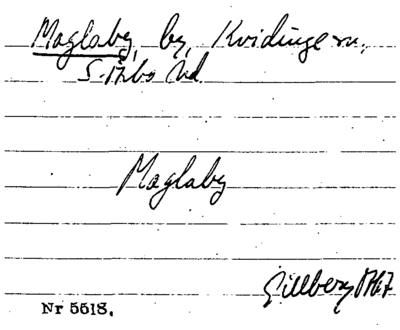 Maglaby, by, Kvidinge sn,
S. Åsbo hd.
Maglaby
Gillberg 1767
Nr 5518.